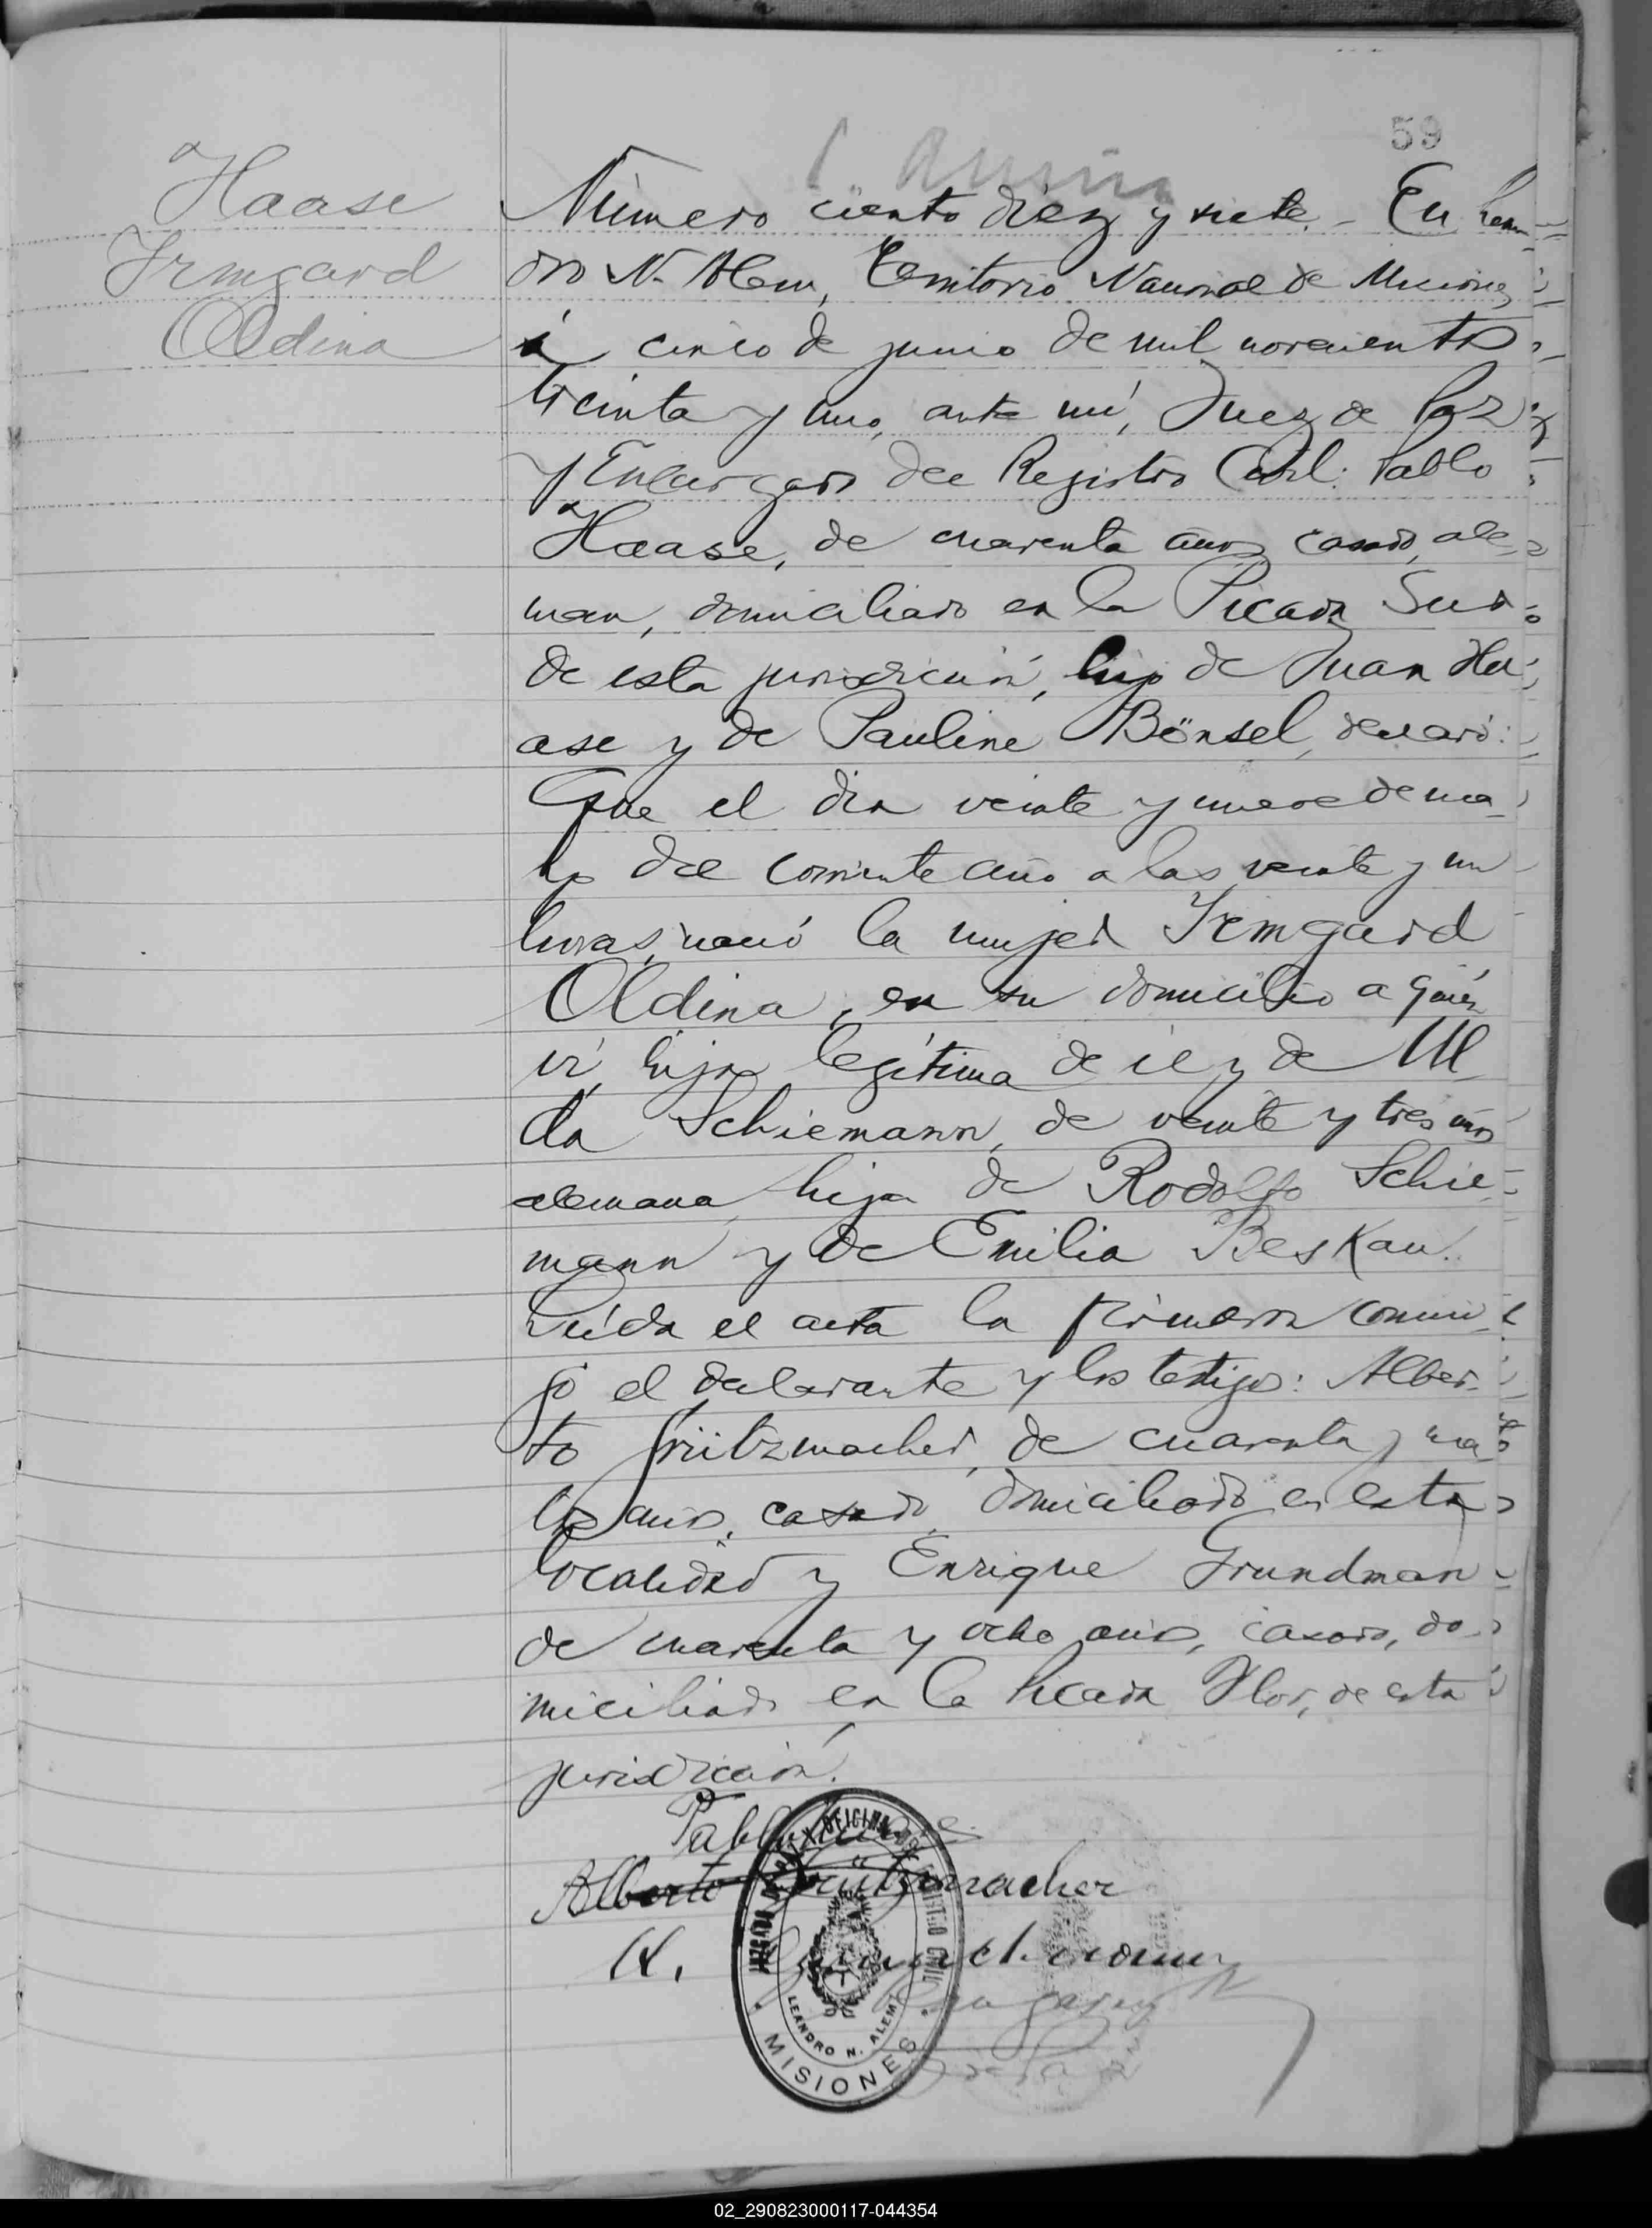 59
Haase
Irmgard
Oldina
Número ciento diez y siete. - En Lean-
dro N. Alem, Territorio Nacional de Misiones
á cinco de junio de mil novecientos
treinta y uno, ante mí, Juez de Paz
y Encargado del Registro Civil: Pablo
Haase, de cuarenta años, casado, ale-
man, domiciliado en la Picada Sud
de esta jurisdicción, hijo de Juan Ha-
ase y de Pauline Bönsel, declaró:
Que el dia veinte y nueve de ma-
yo del corriente año a las veinte y un
horas, nació la mujer Irmgard
Oldina, en su domicilio a quien
ví, hija legítima de él y de
da Schiemann, de veinte y tres años
alemana, hija de Rodolfo Schie-
mann y de Emilia Beskau.
Leída el acta la firmaron conmi-
go el declarante y los testigos: Alber-
to Grützmacher, de cuarenta y
años, casado, domiciliado en esta
localidad y Enrique Grundman
de cuarenta y ocho años, casado, do-
miciliado en la Picada Flor, de esta
jurisdicción.
Pablo Haase
Alberto Grützmacher
H.
JUZGADO DE PAZ Y OFICINA DE REGISTRO CIVIL
LEANDRO N. ALEM
MISIONES
02_290823000117-044354